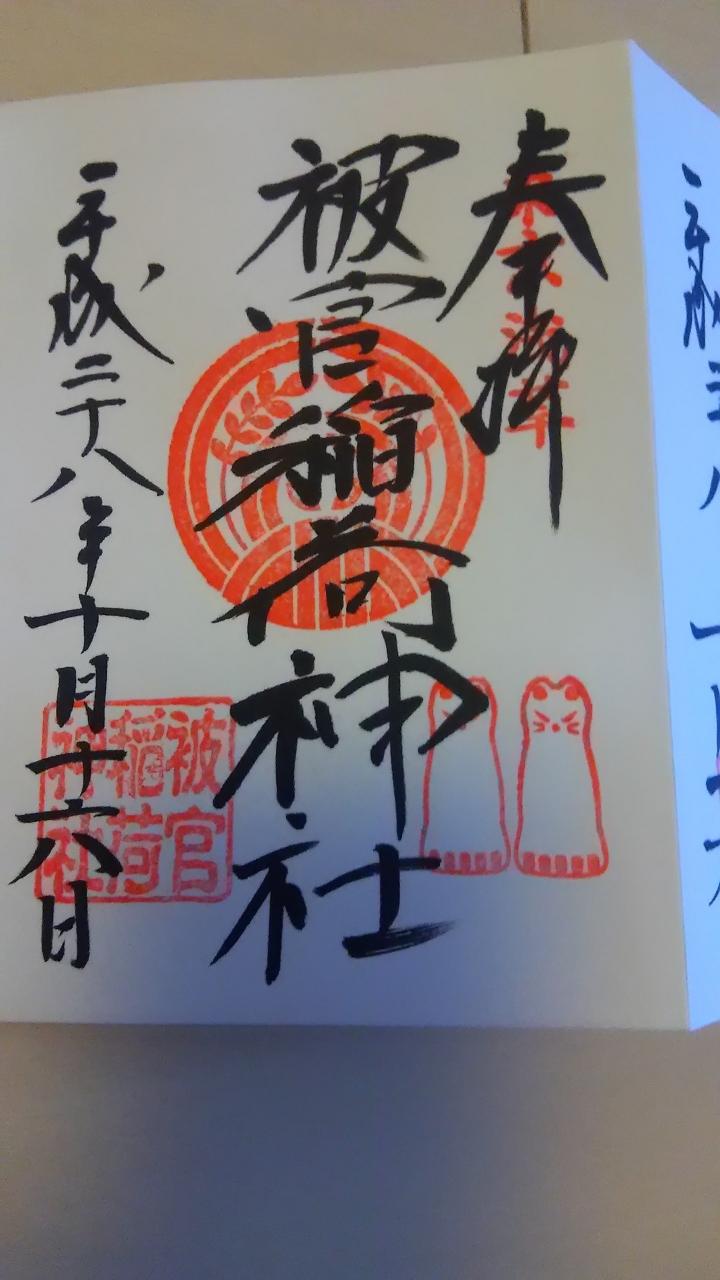 奉拝
東京浅草
被官稲荷神社
被官
稲荷
神社
平成二十八年十月十六日